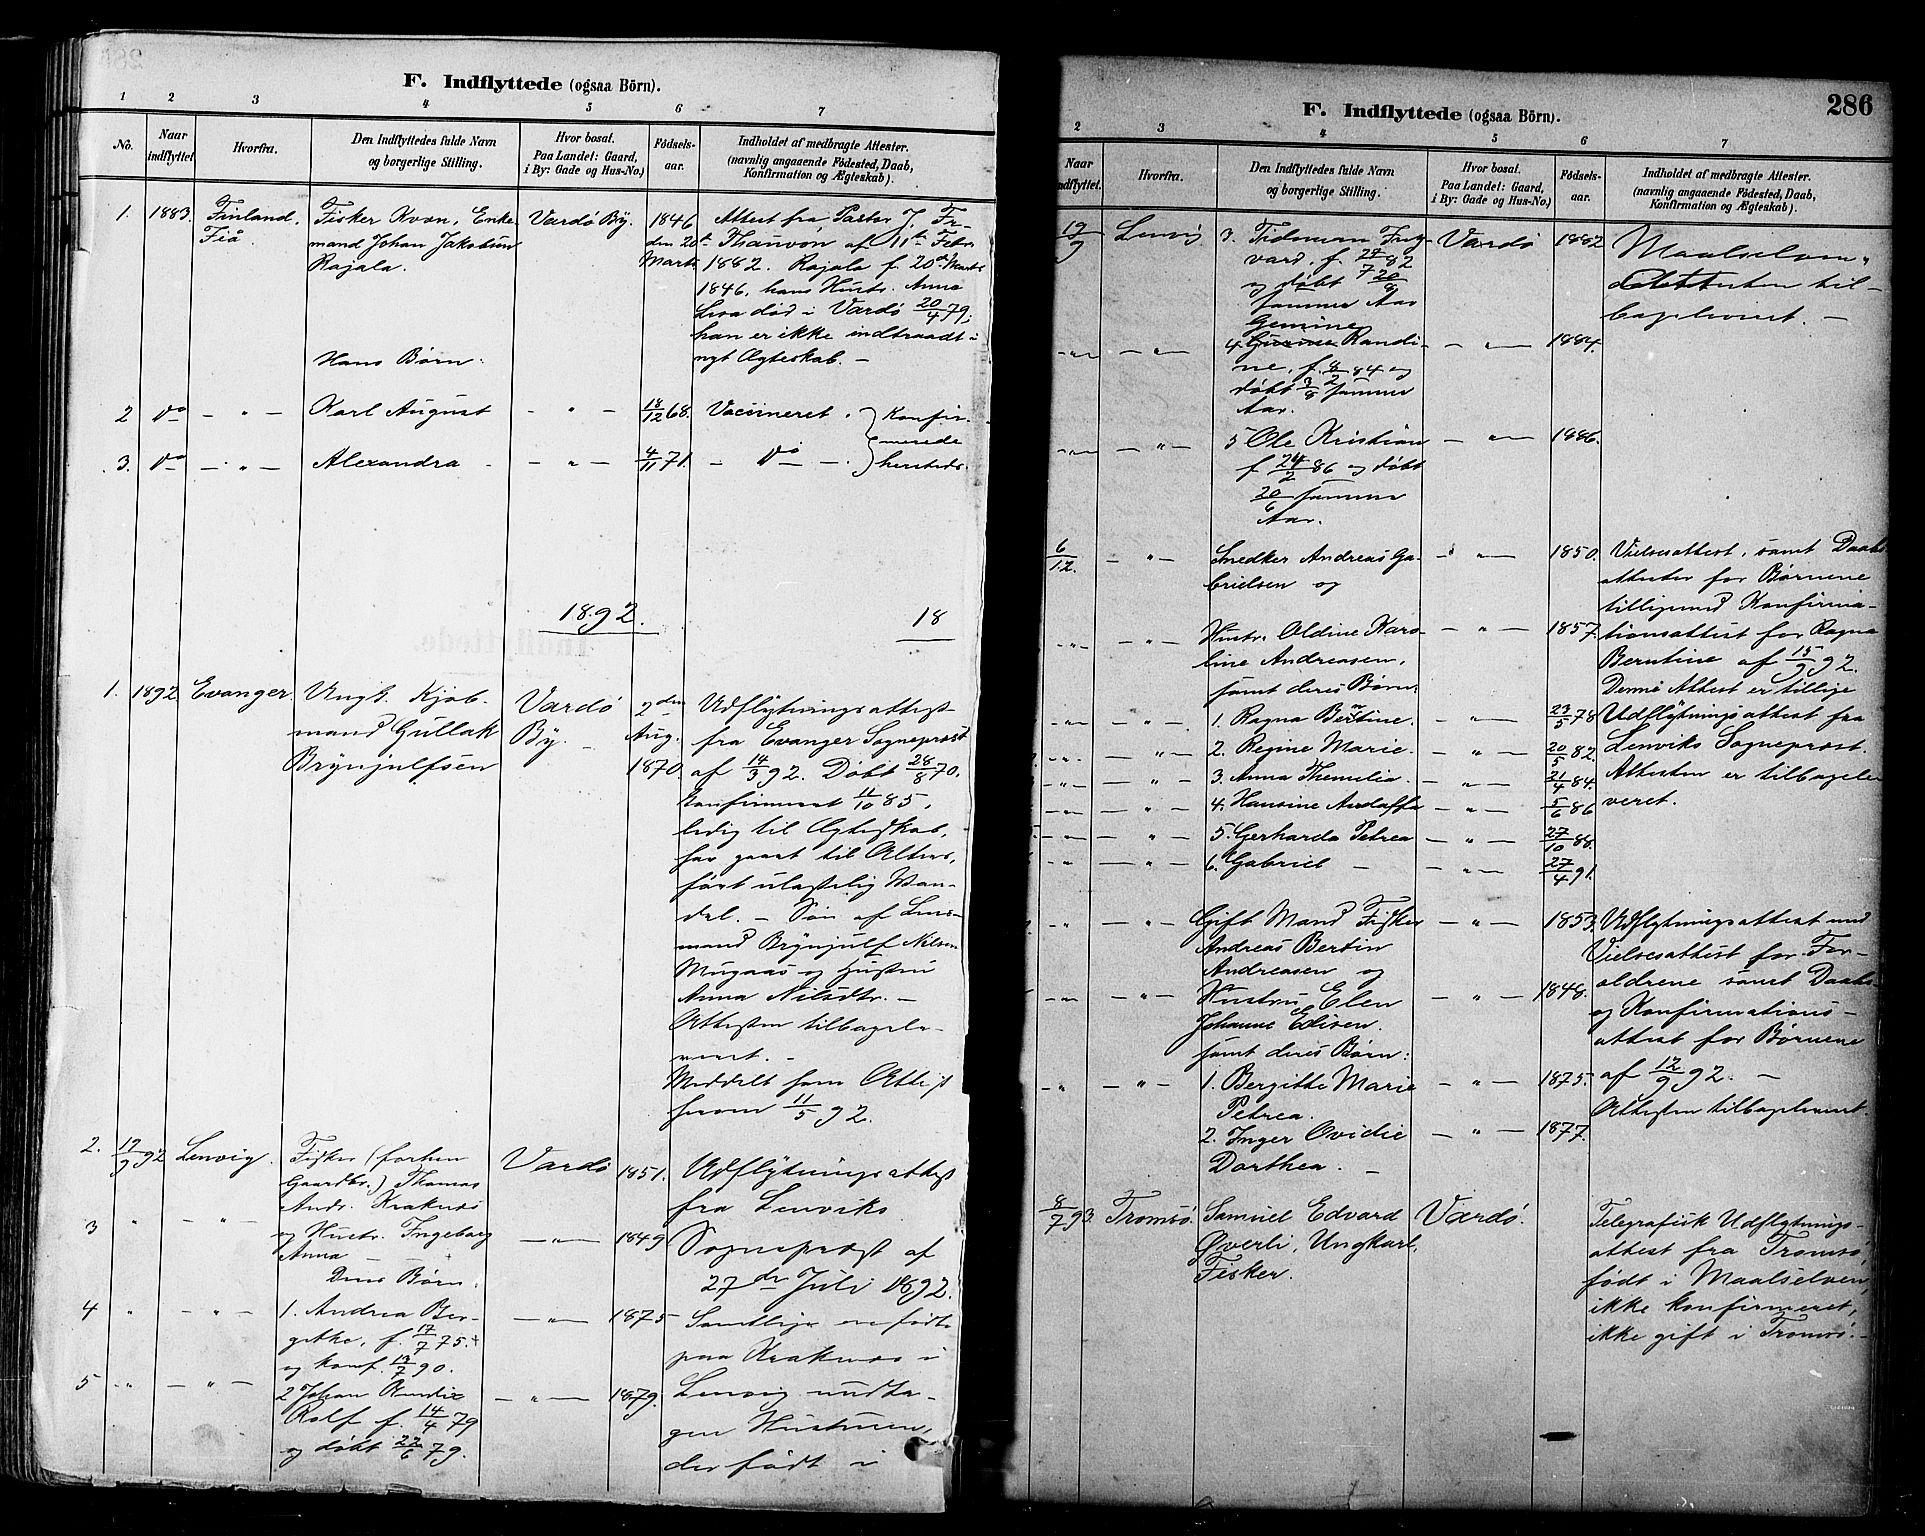 F. Indflyttede (ogsaa Börn).
1 2 3 4 5 6 7
No. Naar indflyttet Hvorfra. Den Indflyttedes fulde Navn og borgerlige Stilling. Hvor bosat. Paa Landet: Gaard, i By: Gade og Hus-No.) Fødsels-aar. Indholdet af medbragte Attester. (navnlig angaaende Födested, Daab, Konfirmation og Ægteskab).
1. 1883. Finland, Fisker Kvæn, Enke Vardö By. 1846 Attest fra Pastor J. Fr.
mand Johan Jakobsen den 20de af 11te Febr
Rajala. Marts 1882. Rajala f. 20de Marts
1846, hans Hustr. Anna
død i Vardö 20/4 79;
han er ikke indtraadt i
Hans Børn: nyt Ægteskab. —
2 Do — " — Karl August — " — 18/12 68. Vaccineret. Konfir-
merede
3. Do — " — Alexandra — " — 4/11 71. — Do — . hersteds.
1892. 18
1. 1892 Evanger. Ungk. Kjøb- Vardö 2den Udflytningsattest
mand Gullak By. — Aug. fra Evanger Sogneprest
Brynjulfsen 1870 af 14/3 92. Döbt 28/8 70.
Konfirmeret 11/10 85,
ledig til Ægteskab,
har gaaet til Alters,
ført ulastelig Van-
del. — Søn af Lens-
mand Brynjulf Nilsen
Mugaas og Hustru
Anna Nilsdtr. —
Attesten tilbagele-
veret. —
Meddelt ham Attest
herom 11/5 92.
2. 17/9 92 Lenvig. Fisker (forhen Vardö 1851. Udflytningsattest
Gaardbr.) Thomas fra Lenviks
Andr. Kraknæs
3 " — " — og Hustr. Ingeborg — " — 1849 Sogneprest af
Anna — 27de Juli 1892.
Deres Børn:
4 " — " — 1. Andrea Ber- — " — 1875 Samtlige ere fødte
gitte, f. 17/7 75. paa Kraknæs i
og konf 13/7 90.
5 " — " — 2 Johan — " — 1879. Lenvig undta-
Rolf f. 14/4 79 gen Hustruen,
og døbt 22/6 79. der født i
286
F. Indflyttede (ogsaa Börn).
2 3 4 5 6 7
Naar indflyttet. Hvorfra. Den Indflyttedes fulde Navn og borgerlige Stilling. Hvor bosat. Paa Landet: Gaard, i By: Gade og Hus-No.) Fødsels-aar. Indholdet af medbragte Attester. (navnlig angaaende Födested, Daab, Konfirmation og Ægteskab).
17/9 Lenvig 3. Tideman Ing- Vardö 1882 Maalselven.
vard, f. 27/7 82
og døbt 20/8 Attesten til-
samme Aar bageleveret. —
Gemine
— " — 4 Randi- — " — 1884.
ne, f. 8/2 84 og
døbt 3/8 samme
Aar.
— " — 5 Ole Kristian — " — 1886.
f 24/2 86 og døbt
20/6 samme
Aar.
6/12. — " — Snedker Andreas Ga- — " — 1850. Vielsesattest, samt Daabs-
brielsen og attester for Børnene
tilligemed Konfirma-
— " — Hustr. Oldine Karo- — " — 1857. tionsattest for Ragna
line Andreasen, Berntine af 15/9 92.
samt deres Børn: Denne Attest er tillige
— " — 1. Ragna Berntine. — " — 23/5 78 Udflytningsattest fra
— " — 2. Regine Marie. — " — 20/5 82. Lenviks Sogneprest.
— " — 3. Anna Themilia. — " — 21/4 84. Attesten er tilbagele-
— " — 4. Hansine Andaffa — " — 5/6 86 veret.
— " — 5. Gerharda Petrea — " — 27/10 88.
— " — 6. Gabriel — — " — 27/4 91.
— " — Gift Mand Fisker — " — 1853. Udflytningsattest med
Andreas Bertin Vielsesattest for For-
Andreasen og ældrene samt Daabs-
— " — Hustru Elen — " — 1848. og Konfirmations-
Johanne Edisen. attest for Børnene
samt deres Børn:
— " — 1. Bergitte Marie — " — 1875. af 12/9 92. —
Petrea. Attesten tilbageleveret.
2. Inger Ovidie — " — 1877.
Dorthea. —
8/7 93. Tromsö. Samuel Edvard Vardö. Telegrafisk Udflytnings-
Øverli, Ungkarl, attest fra Tromsö,
Fisker. født i Maalselven,
ikke konfirmeret,
ikke gift i Tromsö. —